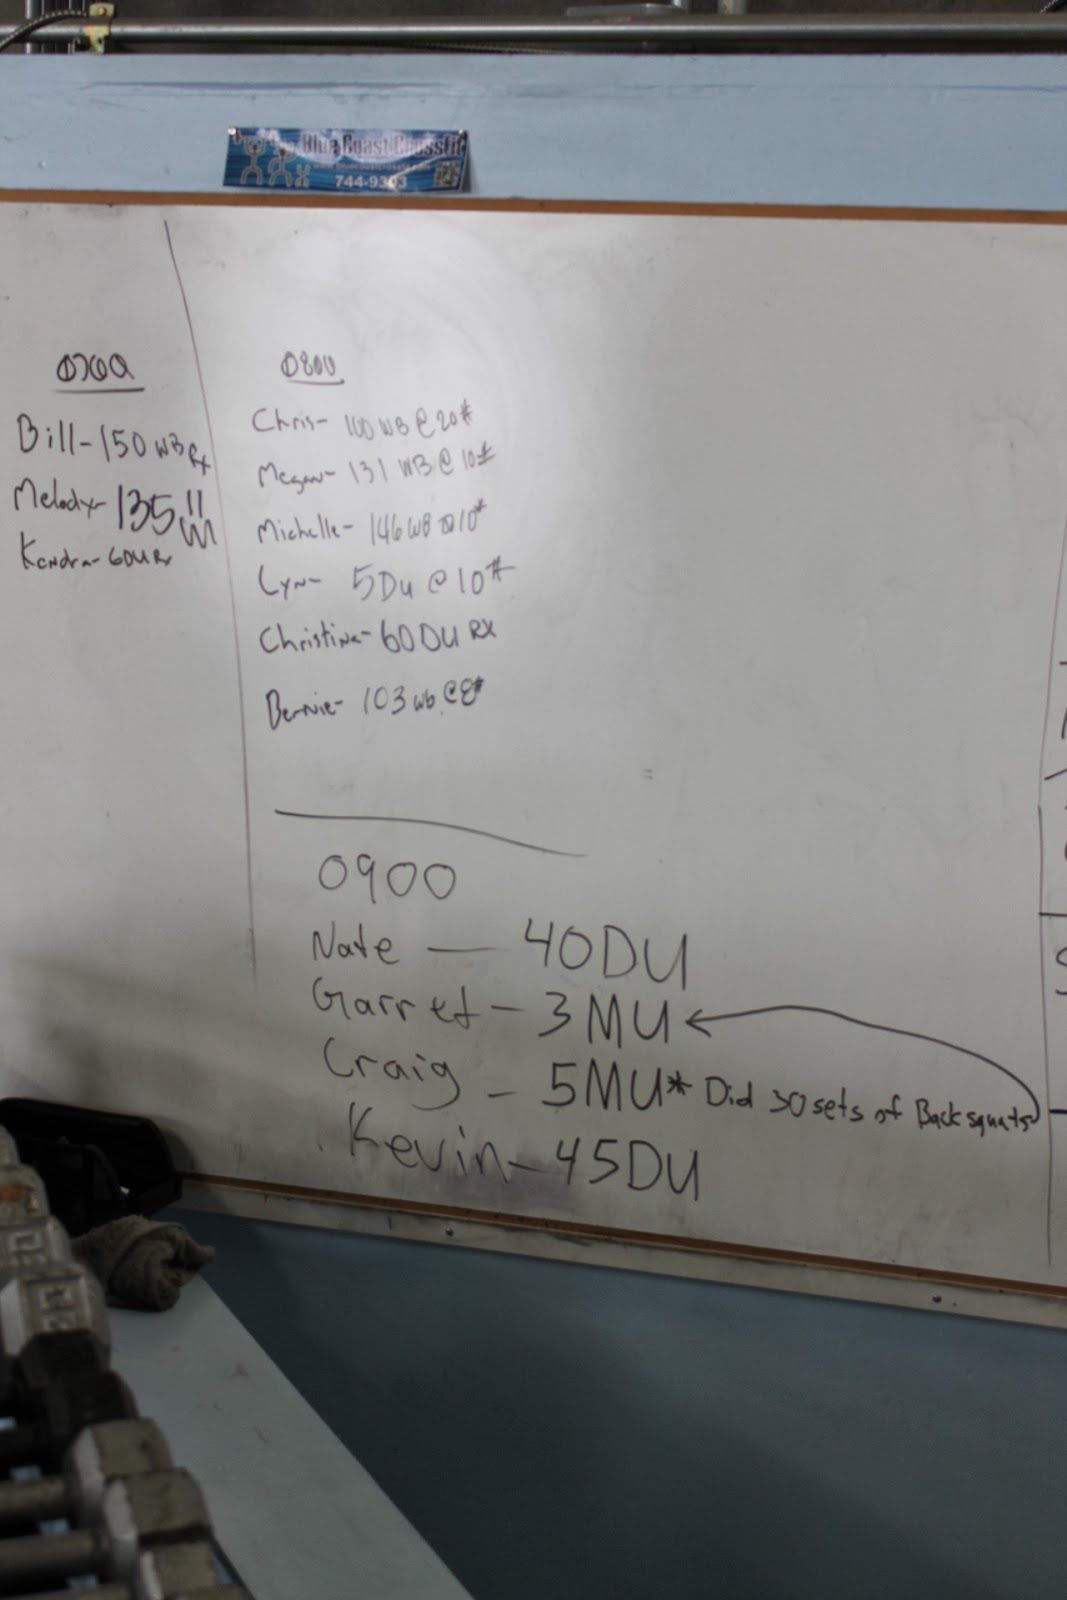 Blue Coast CrossFit
744-9303
0700
Bill- 150 WB Rx
Melody- 135
Kendra- 60U Rx
0800
Chris- 100 WB @ 20#
Megan- 131 WB @ 10#
Michelle- 146 WB @ 10#
Lyn- 5Du @ 10#
Christina- 60 DU RX
Bernie- 103 wb @ 8#
0900
Nate — 40DU
Garret - 3 MU
Craig - 5MU* Did 30 sets of Back squats
Kevin - 45DU